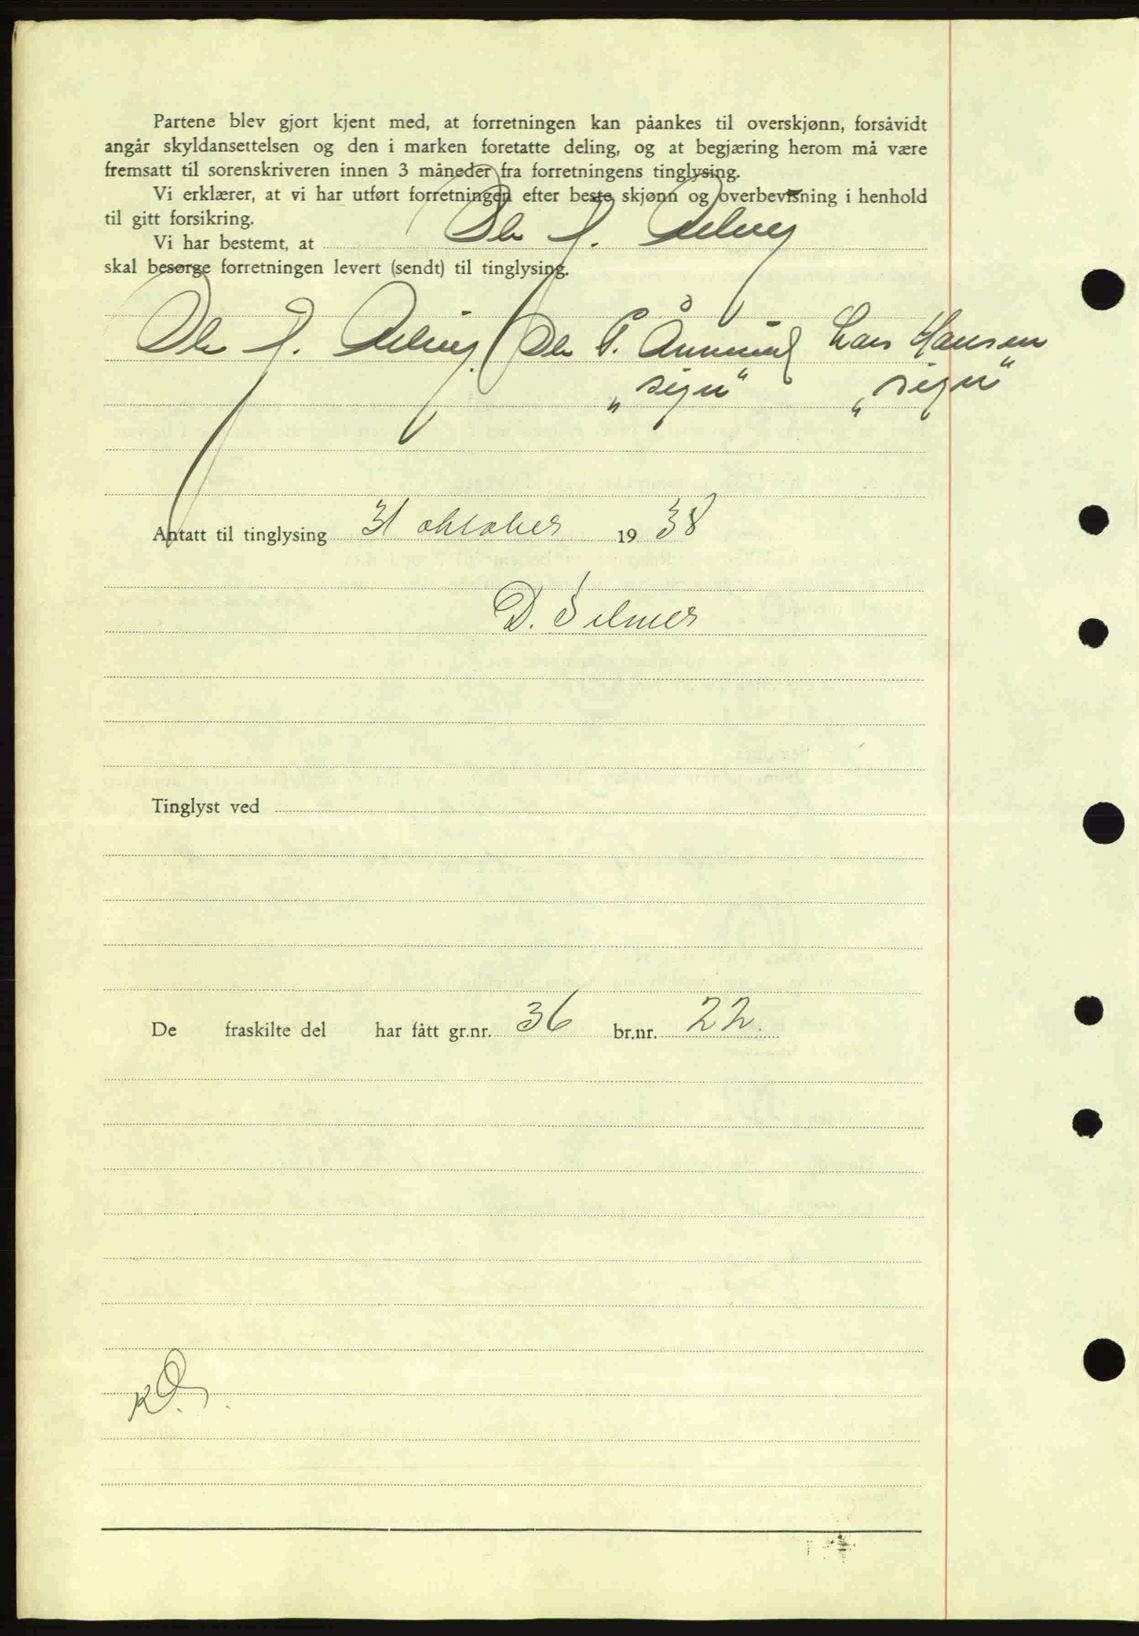 Partene blev gjort kjent med, at forretningen kan påankes til overskjønn, forsåvidt
angår skyldansettelsen og den i marken foretatte deling, og at begjæring herom må være
fremsatt til sorenskriveren innen 3 måneder fra forretningens tinglysing.
Vi erklærer, at vi har utført forretningen efter beste skjønn og overbevisning i henhold
til gitt forsikring.
Vi har bestemt, at Ole J.
skal besørge forretningen levert (sendt) til tinglysing.
Ole J. Ole P. Ånmund Lars Hansen
„sign" „sign"
Antatt til tinglysing 31 oktober 1938
D. Selmer
Tinglyst ved
De fraskilte del har fått gr.nr. 36 br.nr. 22.